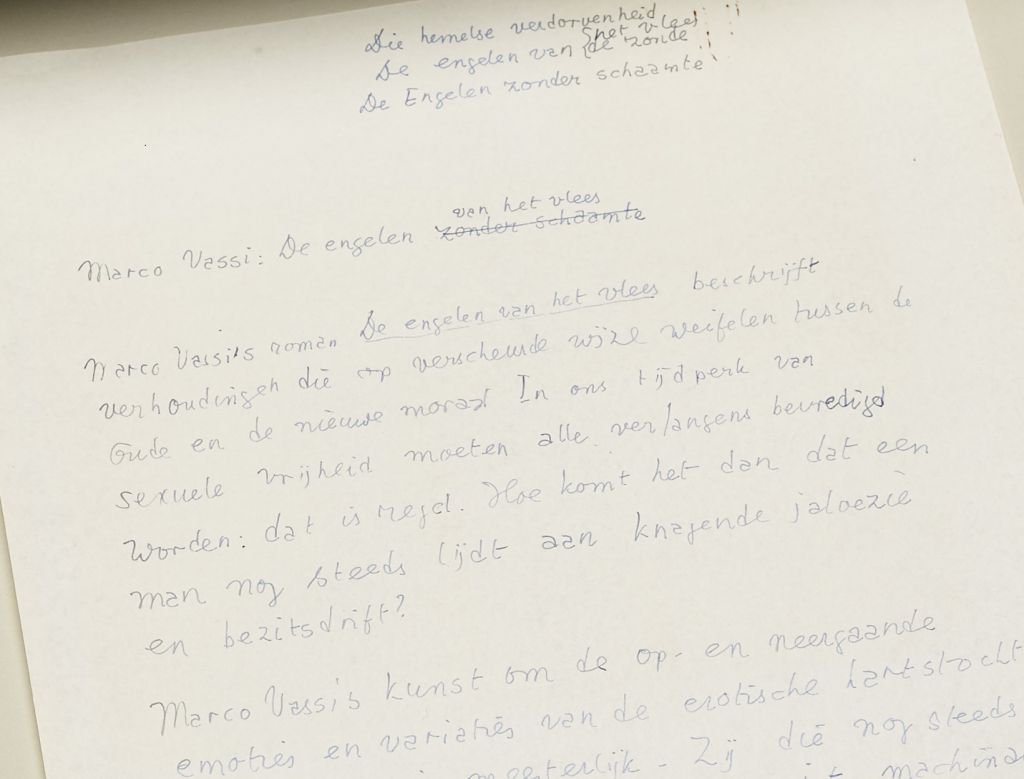 Die hemelse verdorvenheid
De engelen van {het vlees
{de zonde
De Engelen zonder schaamte
van het vlees
Marco Vassi: De engelen zonder schaamte
Marco Vassi's roman De engelen van het vlees beschrijft
verhoudingen die op verscheurde wijze weifelen tussen de
Oude en de nieuwe moraal In ons tijdperk van
sexuele vrijheid moeten alle verlangens bevredigd
worden: dat is regel. Hoe komt het dan dat een
man nog steeds lijdt aan knagende jaloezie
en bezitsdrift?
Marco Vassi's kunst om de op- en neergaande
emoties en variaties van de erotische hartstocht
meesterlijk. Zij die nog steeds